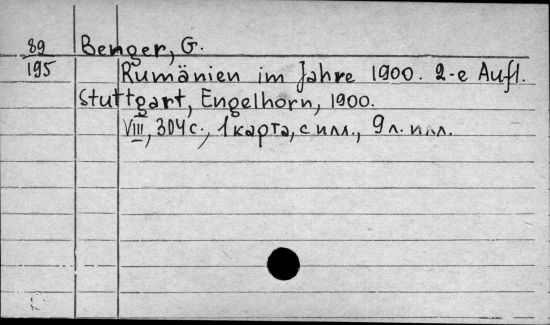 89
195
Benger, G.
Rumänien im Jahre 1900. 2-e Aufl.
Stuttgart, Engelhorn, 1900.
VIII, 304 с., 1 карта, с илл., 9 л. илл.